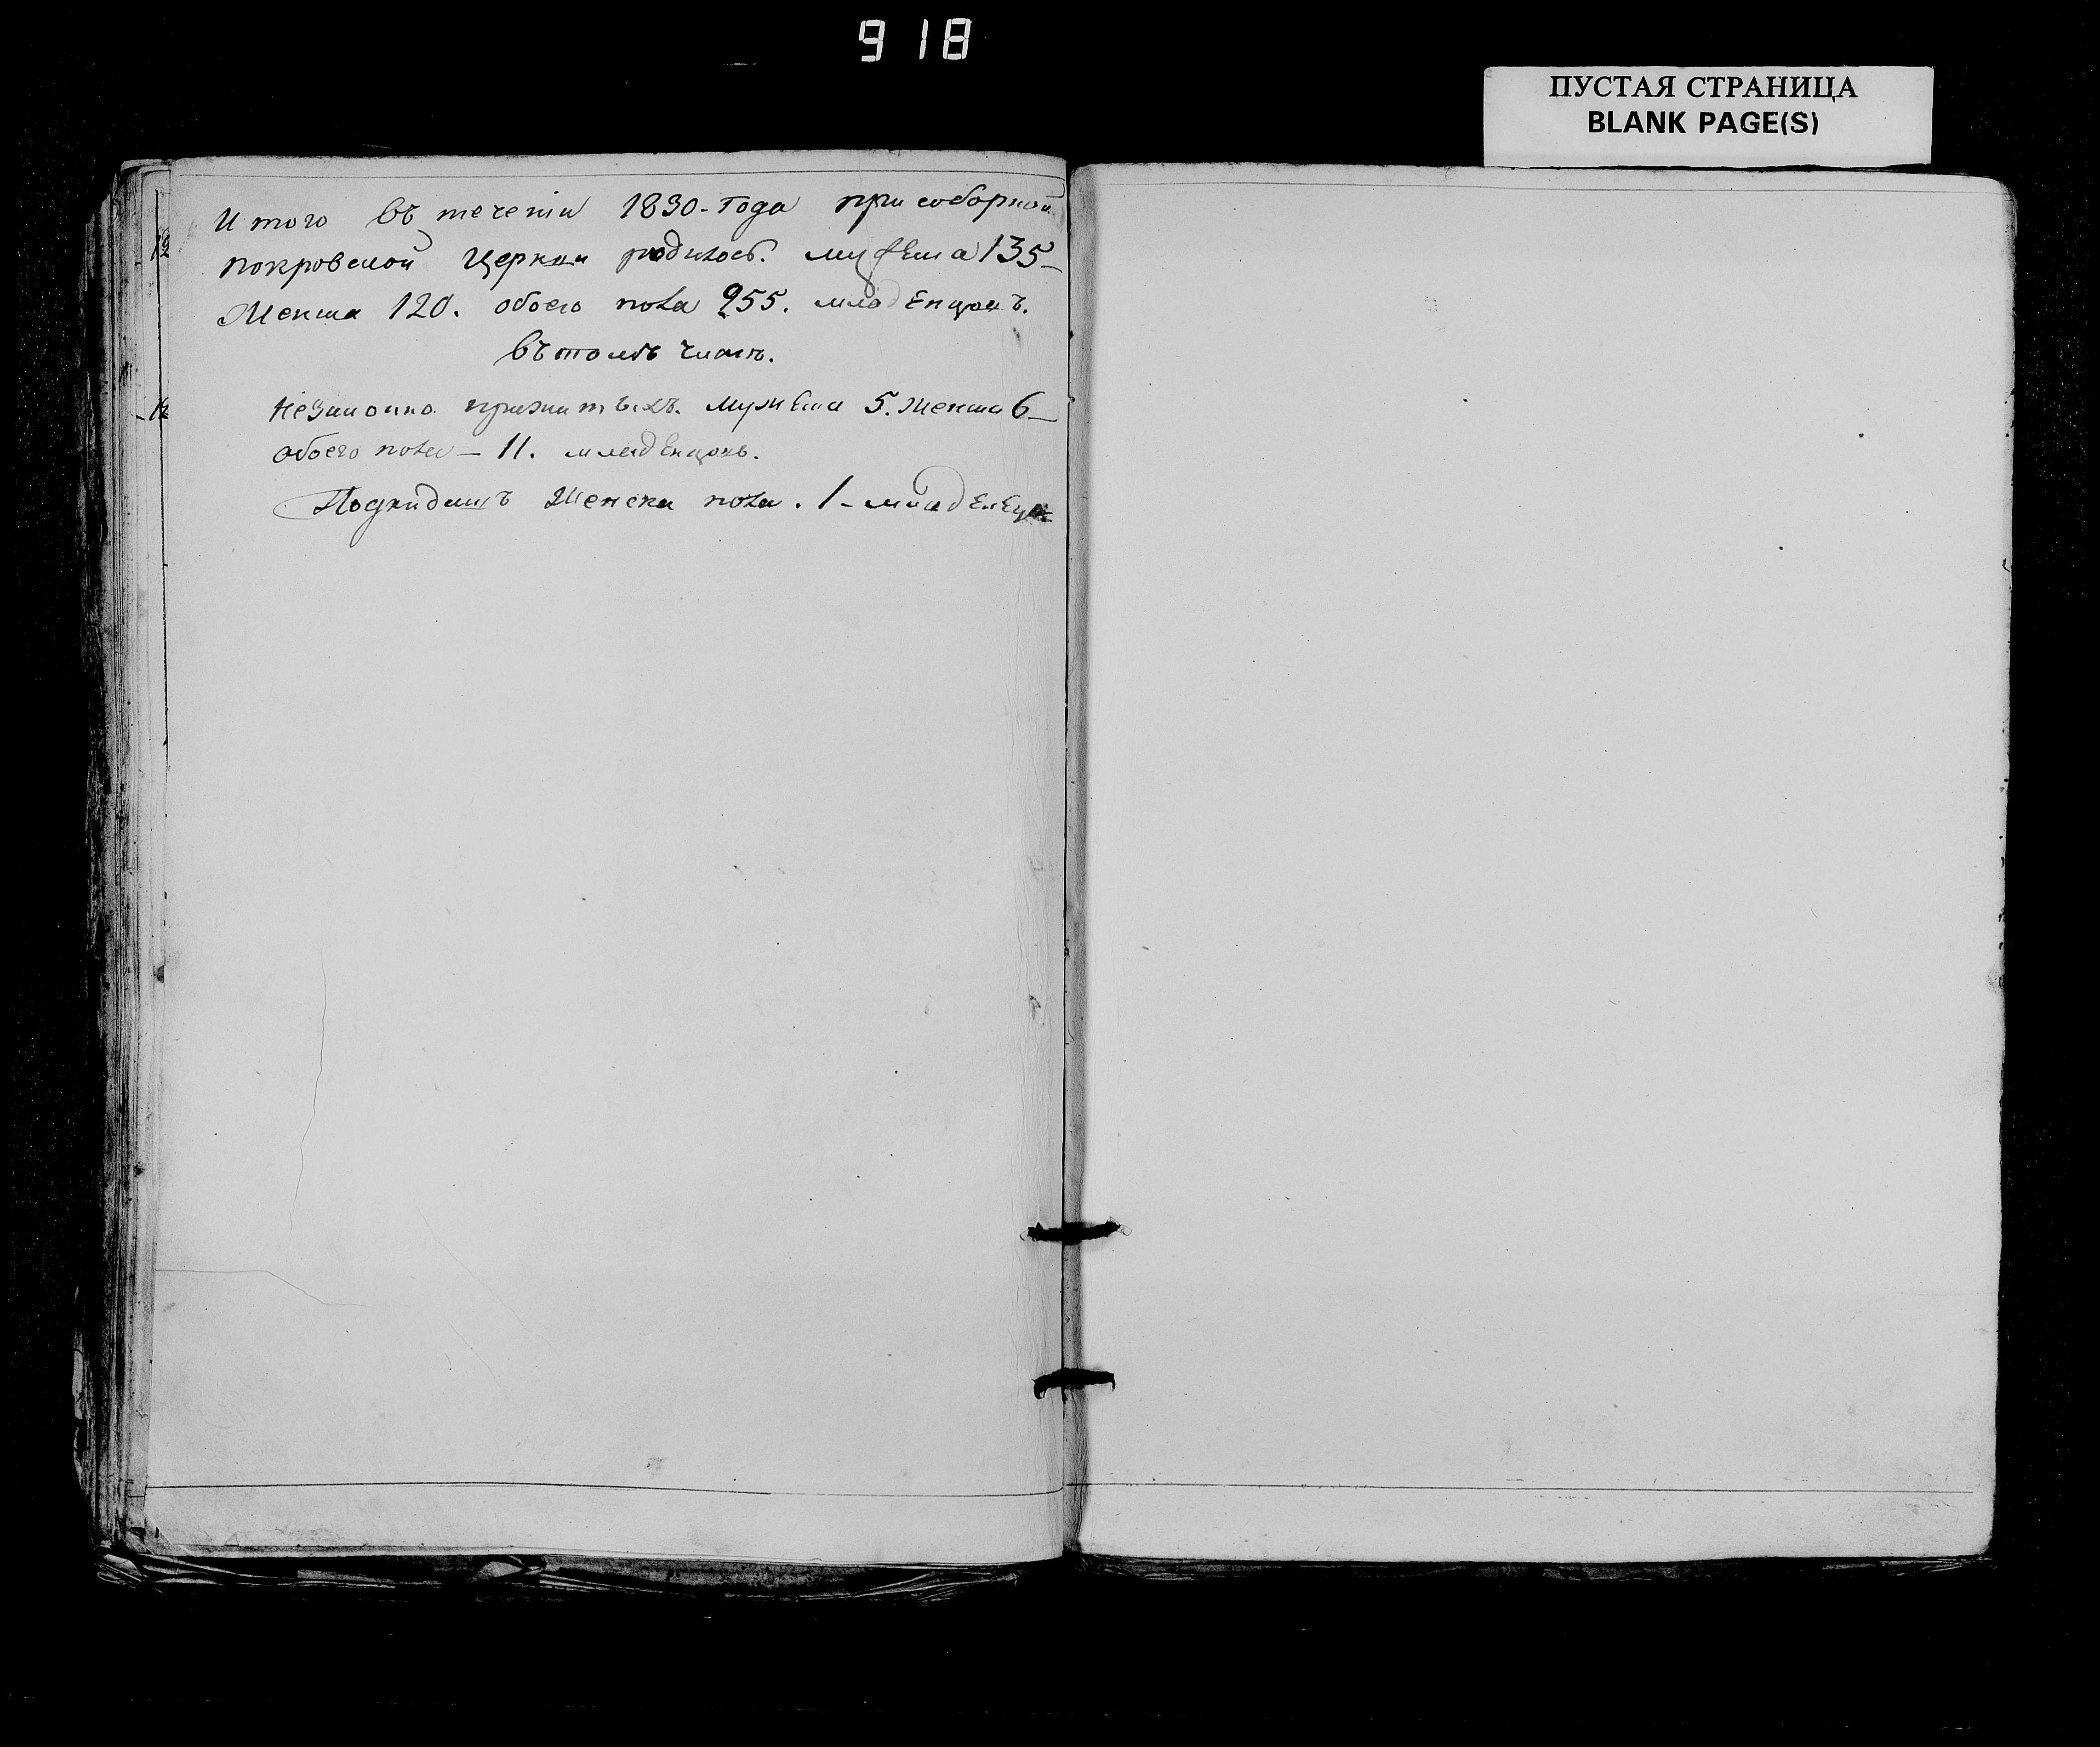 918
ПУСТАЯ СТРАНИЦА
BLANK PAGE(S)
Итого въ теченіи 1830-Года при соборной
покровской церкви родилось. мужеска 135-
Женска 120. обоего пола 255. младенцовъ.
въ томъ числѣ.
незаконно прижитыхъ. мужеска 5. женска 6-
обоего пола - 11. младенцовъ.
Подкидышъ Женска пола. 1 - младенецъ